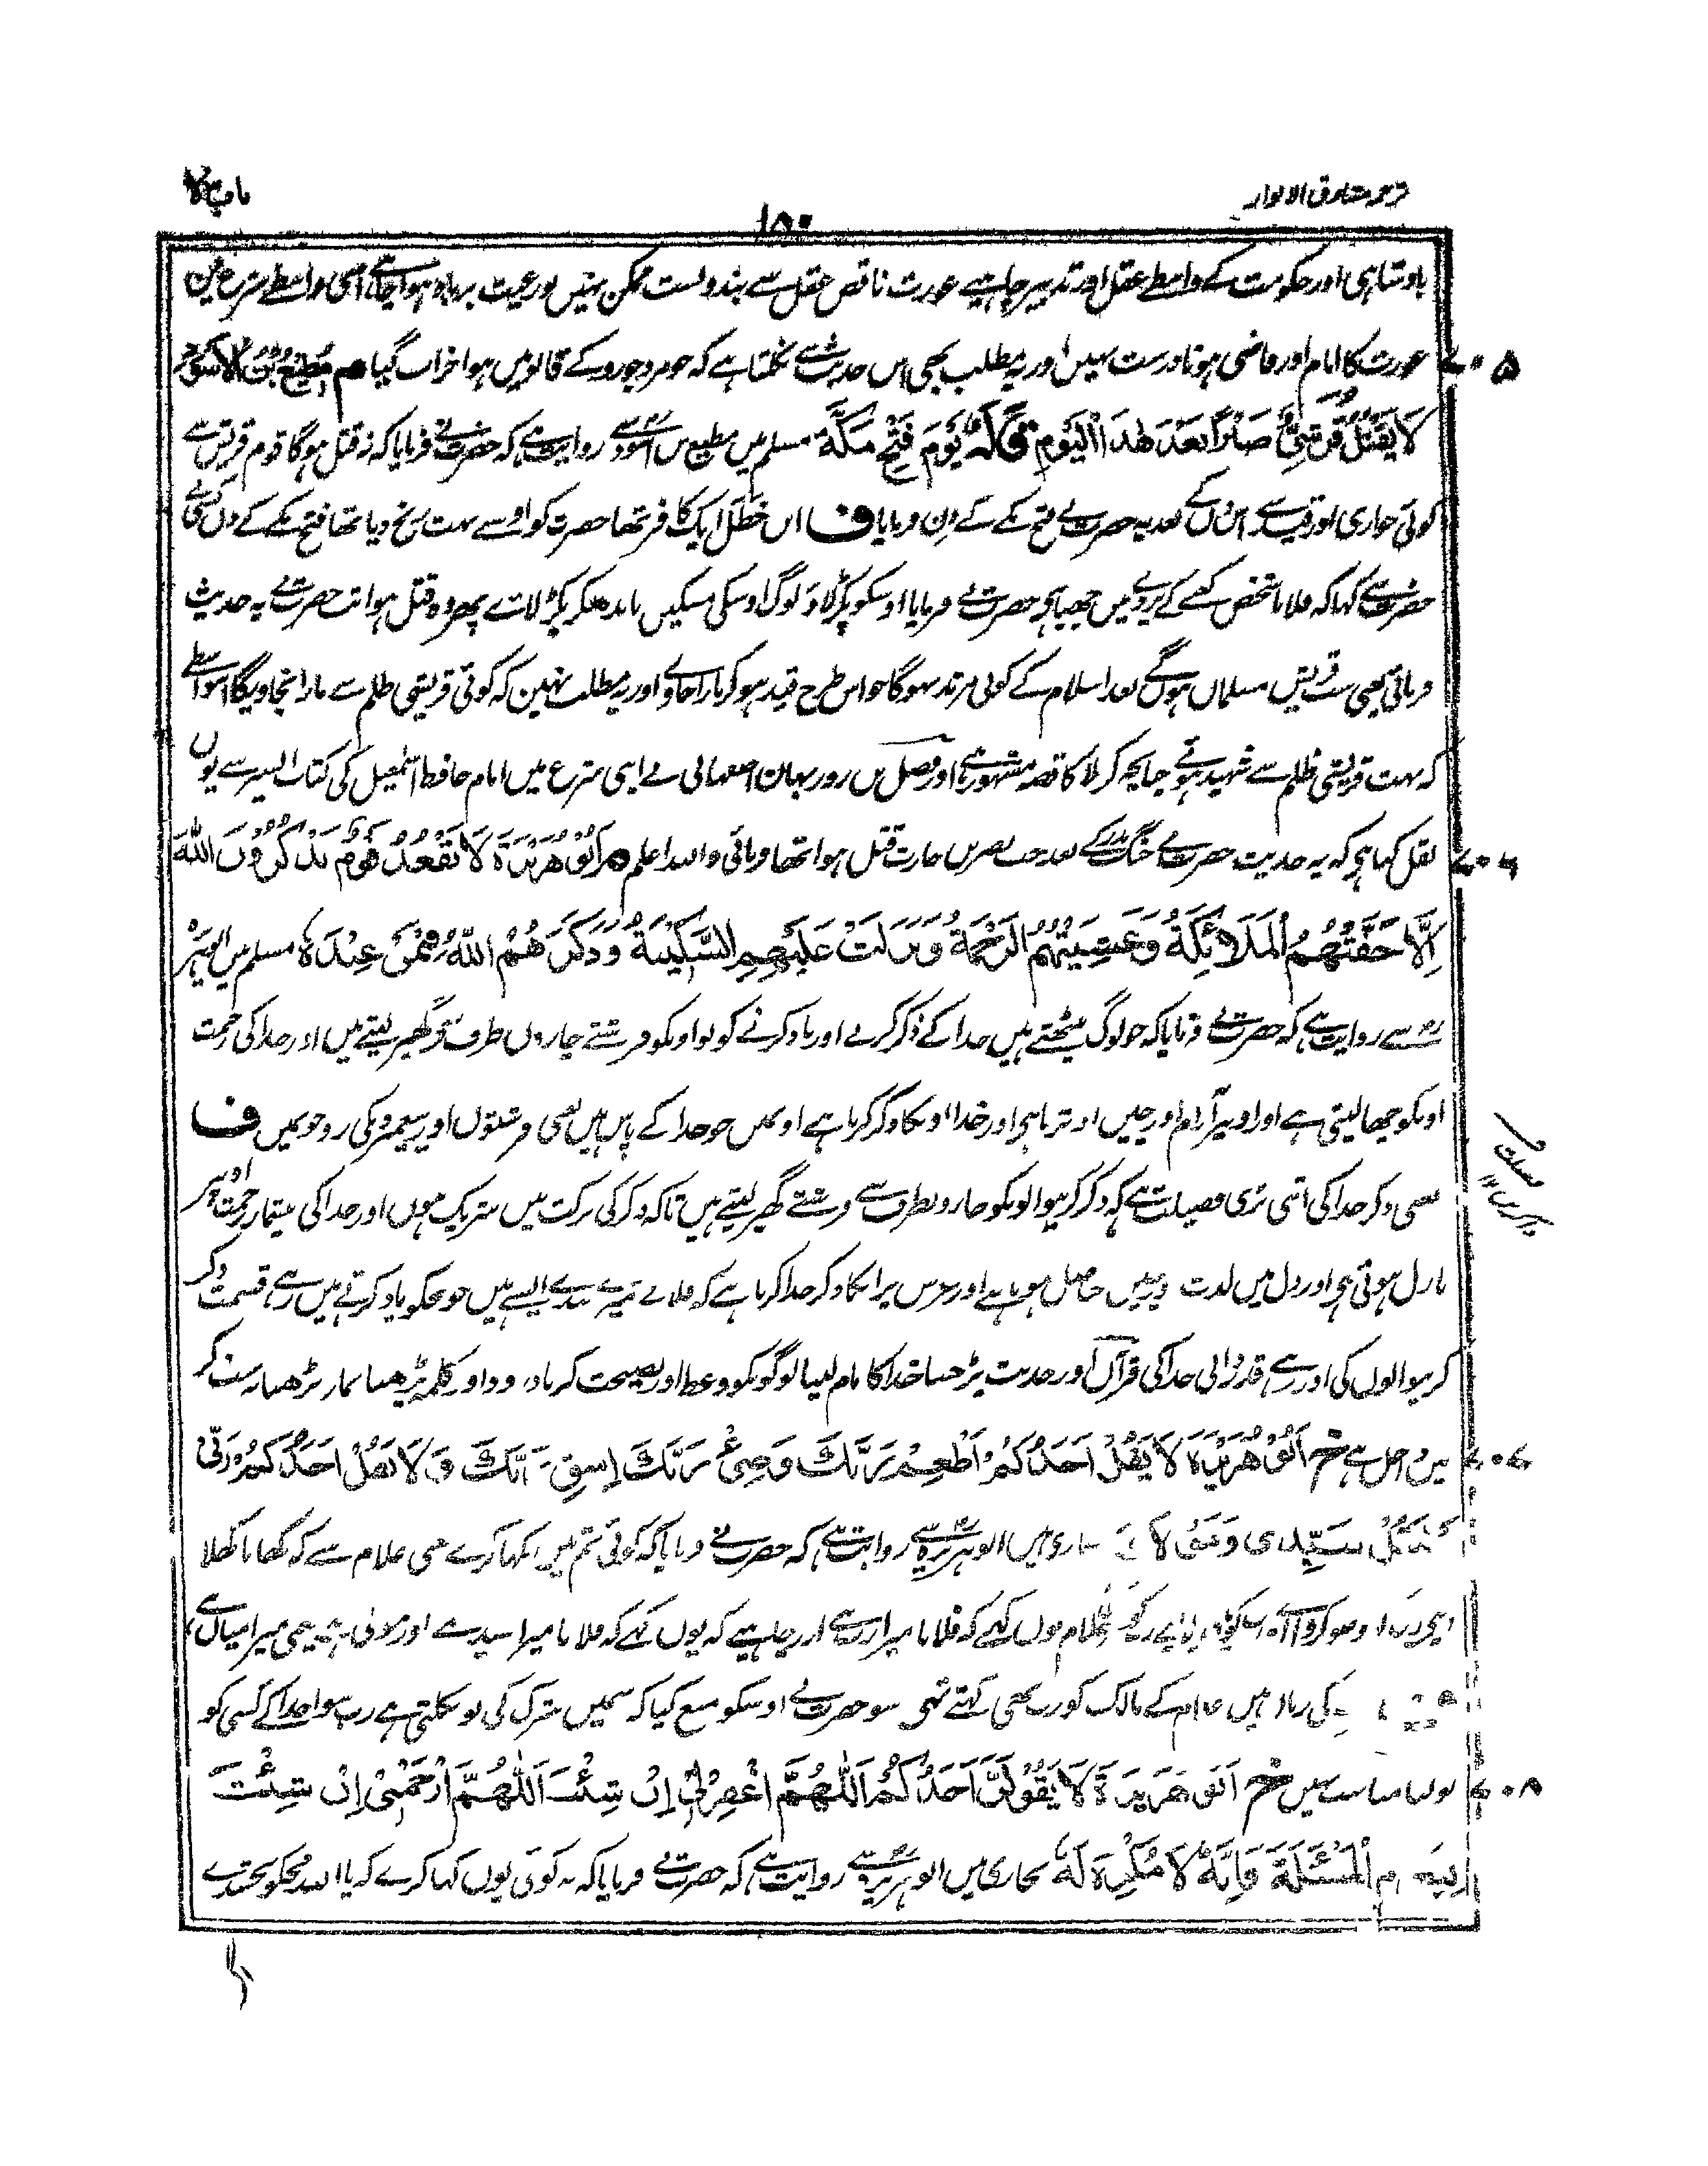 ترجمہ مشارق الانوار
۱۸۰
باب
بادشاہی اور حکومت کے واسطے عقل اور تدبیر چاہیے عورت ناقص عقل سے بندوبست ممکن نہیں اور رعیت برباد ہو جاتی ہے اسی واسطے شرع میں
۷۰۵ عورت کا امام اور قاضی ہونا درست نہیں اور یہ مطلب بھی اس حدیث سے نکلتا ہے کہ جو مرد جورو کے قابو میں ہوا خراب گیا م مُطِيعُ بْنُ الْأَسْوَدِ
لَا يُقْتَلُ قُرَشِيٌّ صَبْرًا بَعْدَ هٰذَا الْيَوْمِ قَالَهُ يَوْمَ فَتْحِ مَكَّةَ مسلم میں مطیع بن اسود سے روایت ہے کہ حضرت نے فرمایا کہ نہ قتل ہوگا قوم قریش سے
کوئی خواری اور قید سے اس دن کے بعد یہ حضرت نے فتح مکے کے دن فرمایا ف ابن خطل ایک کافر تھا حضرت کو اوسنے بہت رنج دیا تھا فتح مکے کے دن کسی نے
حضرت سے کہا کہ فلانا شخص کعبے کے پردے میں چھپا ہی حضرت نے فرمایا اوسکو پکڑ لاؤ لوگ اوسکی مشکیں باندھکر پکڑ لائے پھر وہ قتل ہوا تب حضرت نے یہ حدیث
فرمائی یعنی سب قریش مسلمان ہوں گے بعد اسلام کے کوئی مرتد نہوگا جو اس طرح قید ہو کر مارا جاوے اور یہ مطلب نہین کہ کوئی قریشی ظلم سے مارا نجاویگا اسواسطے
کہ بہت قریشی ظلم سے شہید ہوئے چنانچہ کربلا کا قصہ مشہور ہے اور فضل بن روزبہان اصفہانی نے اپنی شرع میں امام حافظ اسمٰعیل کی کتاب السیر سے یوں
۷۰۶ نقل کیا ہی کہ یہ حدیث حضرت نے جنگ بدر کے بعد جب نضر بن حارث قتل ہوا تھا فرمائی واللہ اعلم م أَبُو هُرَيْرَةَ لَا يَقْعُدُ قَوْمٌ يَذْكُرُونَ اللّٰهَ
إِلَّا حَفَّتْهُمُ الْمَلَائِكَةُ وَغَشِيَتْهُمُ الرَّحْمَةُ وَنَزَلَتْ عَلَيْهِمُ السَّكِينَةُ وَذَكَرَهُمُ اللّٰهُ فِيمَنْ عِنْدَهُ مسلم میں ابوہریرہ
رض سے روایت ہے کہ حضرت نے فرمایا کہ جو لوگ بیٹھتے ہیں خدا کے ذکر کرنے اور یاد کرنے کو تو اونکو فرشتے چاروں طرف سے گھیر لیتے ہیں اور خدا کی رحمت
اونکو چھا لیتی ہے اور اونپر آرام اور چین اوترتا ہی اور خدا اونکا ذکر کرتا ہے اونمیں جو خدا کے پاس ہیں یعنی فرشتوں اور پیغمبرونکی روحونمیں ف
یعنی ذکر خدا کی اتنی بڑی فضیلت ہے کہ ذکر کرنیوالونکو چارونطرف سے فرشتے گھیر لیتے ہیں تاکہ ذکر کی برکت میں شریک ہوں اور خدا کی بیشمار رحمت اونپر
نازل ہوتی ہی اور دل میں لذت وچین حاصل ہوتا ہے اور عرش پر انکا ذکر خدا کرتا ہے کہ فلانے میرے بندے ایسے ہیں جو مجکو یاد کرتے ہیں زہے قسمت ذکر
کرنیوالوں کی اور زہے قدردانی خدا کی قرآن اور حدیث پڑھنا خدا کا نام لینا لوگونکو وعظ اور نصیحت کرنا درود اور کلمہ پڑھنا نماز پڑھنا یہ سب ذکر
۷۰۷ میں داخل ہے خ أَبُو هُرَيْرَةَ لَا يَقُلْ أَحَدُكُمْ أَطْعِمْ رَبَّكَ وَضِّئْ رَبَّكَ اِسْقِ رَبَّكَ وَلَا يَقُلْ أَحَدُكُمْ رَبِّي
سَيِّدِي وَمَوْلَايَ بخاری میں ابوہریرہ سے روایت ہے کہ حضرت نے فرمایا کہ کوئی تم میں نکہا کرے کسی غلام سے کہ کھانا کھلا
غلام یوں کہے کہ فلانا میرا رب ہے اور چاہیے کہ یوں کہے کہ فلانا میرا سید ہے اور مولیٰ ہے یعنی میرا میاں ہے
کی زبان میں غلام کے مالک کو رب بھی کہتے تھی سو حضرت نے اوسکو منع کیا کہ اسمیں شرک کی بو نکلتی ہے رب سوا خدا کے کسی کو
۷۰۸ بولنا مناسب نہیں خ أَبُو هُرَيْرَةَ لَا يَقُولَنَّ أَحَدُكُمْ اَللّٰهُمَّ اغْفِرْ لِي إِنْ شِئْتَ اَللّٰهُمَّ ارْحَمْنِي إِنْ شِئْتَ
لِيَعْزِمِ الْمَسْئَلَةَ فَإِنَّهُ لَا مُكْرِهَ لَهُ بخاری میں ابوہریرہ سے روایت ہے کہ حضرت نے فرمایا کہ نہ کوئی یوں کہا کرے کہ یا اللہ مجکو بخشدے